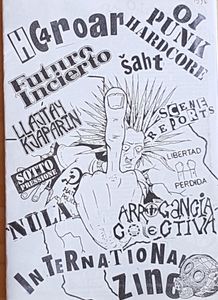 HC4roar
OI
PUNK
HARDCORE
Futuro
Incierto
Šaht
LLAJTAY
KJAPARIN
SCENE
REPORTS
SOTTO
PRESSIONE
LIBERTAD
PERDIDA
NULA
ARROGANCIA
COLECTIVA
INTERNATIONAL
Zine